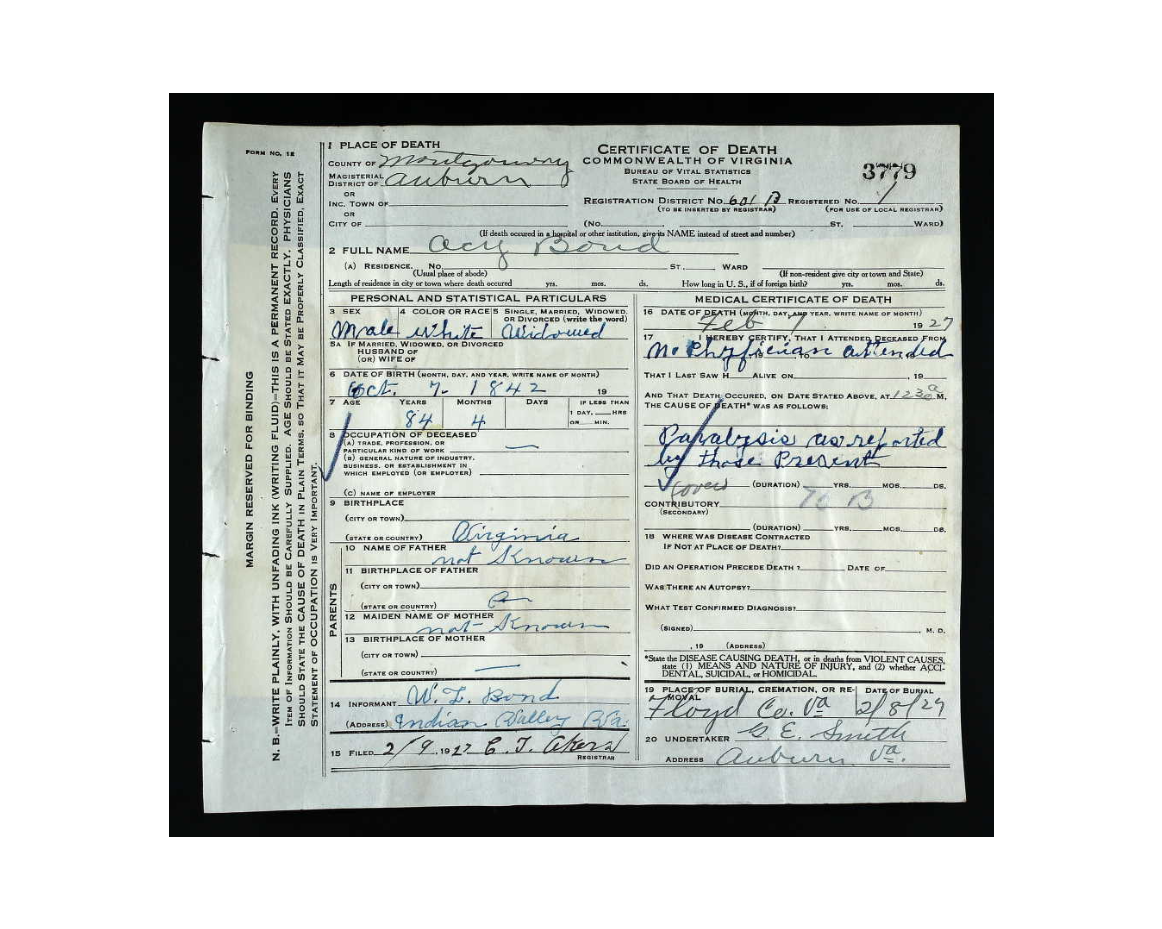 FORM NO. 12
MARGIN RESERVED FOR BINDING
N. B.—WRITE PLAINLY, WITH UNFADING INK (WRITING FLUID)—THIS IS A PERMANENT RECORD. EVERY
ITEM OF INFORMATION SHOULD BE CAREFULLY SUPPLIED. AGE SHOULD BE STATED EXACTLY. PHYSICIANS
SHOULD STATE THE CAUSE OF DEATH IN PLAIN TERMS, SO THAT IT MAY BE PROPERLY CLASSIFIED. EXACT
STATEMENT OF OCCUPATION IS VERY IMPORTANT.
1 PLACE OF DEATH
COUNTY OF Montgomery
MAGISTERIAL DISTRICT OF Auburn
OR
INC. TOWN OF
OR
CITY OF
CERTIFICATE OF DEATH
COMMONWEALTH OF VIRGINIA
BUREAU OF VITAL STATISTICS
STATE BOARD OF HEALTH
3779
REGISTRATION DISTRICT NO. 601 B REGISTERED NO. 1
(TO BE INSERTED BY REGISTRAR) (FOR USE OF LOCAL REGISTRAR)
(NO. ST. WARD)
(If death occured in a hospital or other institution, give its NAME instead of street and number)
2 FULL NAME Acy Bond
(A) RESIDENCE. NO. ST. WARD
(Usual place of abode) (If non-resident give city or town and State)
Length of residence in city or town where death occured yrs. mos. ds. How long in U. S., if of foreign birth? yrs. mos. ds.
PERSONAL AND STATISTICAL PARTICULARS
3 SEX 4 COLOR OR RACE 5 SINGLE, MARRIED, WIDOWED, OR DIVORCED (write the word)
Male White Widowed
5A IF MARRIED, WIDOWED, OR DIVORCED
HUSBAND OF
(OR) WIFE OF
6 DATE OF BIRTH (MONTH, DAY, AND YEAR, WRITE NAME OF MONTH)
Oct. 7- 1842 19
7 AGE YEARS MONTHS DAYS IF LESS THAN
1 DAY, HRS
OR MIN.
84 4
8 OCCUPATION OF DECEASED
(A) TRADE, PROFESSION, OR
PARTICULAR KIND OF WORK —
(B) GENERAL NATURE OF INDUSTRY,
BUSINESS, OR ESTABLISHMENT IN
WHICH EMPLOYED (OR EMPLOYER)
(C) NAME OF EMPLOYER
9 BIRTHPLACE
(CITY OR TOWN)
(STATE OR COUNTRY) Virginia
PARENTS
10 NAME OF FATHER
not Known
11 BIRTHPLACE OF FATHER
(CITY OR TOWN)
(STATE OR COUNTRY)
12 MAIDEN NAME OF MOTHER
not Known
13 BIRTHPLACE OF MOTHER
(CITY OR TOWN)
(STATE OR COUNTRY) —
14 INFORMANT W. L. Bond
(ADDRESS) Indian Valley Va.
15 FILED 2/9 1927 C. T. Akers
REGISTRAR
MEDICAL CERTIFICATE OF DEATH
16 DATE OF DEATH (MONTH, DAY, AND YEAR, WRITE NAME OF MONTH)
Feb 7 1927
17 I HEREBY CERTIFY, THAT I ATTENDED DECEASED FROM
No Physician attended
THAT I LAST SAW H ALIVE ON , 19
AND THAT DEATH OCCURED, ON DATE STATED ABOVE, AT 12 30 a M.
THE CAUSE OF DEATH* WAS AS FOLLOWS:
Paralysis as reported
by those Present
(over) (DURATION) YRS. MOS. DS.
CONTRIBUTORY
(SECONDARY)
(DURATION) YRS. MOS. DS.
18 WHERE WAS DISEASE CONTRACTED
IF NOT AT PLACE OF DEATH?
DID AN OPERATION PRECEDE DEATH? DATE OF
WAS THERE AN AUTOPSY?
WHAT TEST CONFIRMED DIAGNOSIS?
(SIGNED) M. D.
, 19 (ADDRESS)
*State the DISEASE CAUSING DEATH, or in deaths from VIOLENT CAUSES,
state (1) MEANS AND NATURE OF INJURY, and (2) whether ACCI-
DENTAL, SUICIDAL, or HOMICIDAL.
19 PLACE OF BURIAL, CREMATION, OR RE- DATE OF BURIAL
MOVAL
Floyd Co. Va 2/8/27
20 UNDERTAKER G. E. Smith
ADDRESS Auburn Va.